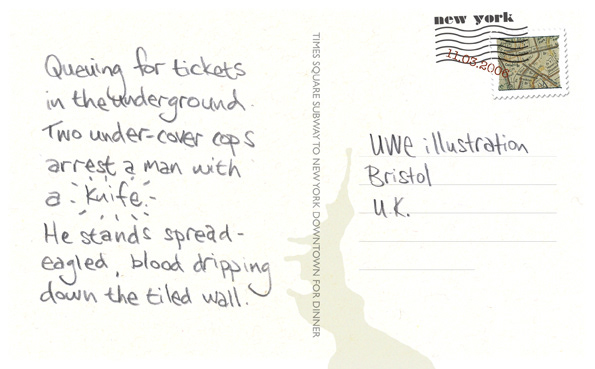 Queuing for tickets
in the underground.
Two under-cover cops
arrest a man with
a knife.
He stands spread-
eagled, blood dripping
down the tiled wall.
TIMES SQUARE SUBWAY TO NEW YORK DOWNTOWN FOR DINNER
new york
11.03.2006
UWE illustration
Bristol
U.K.